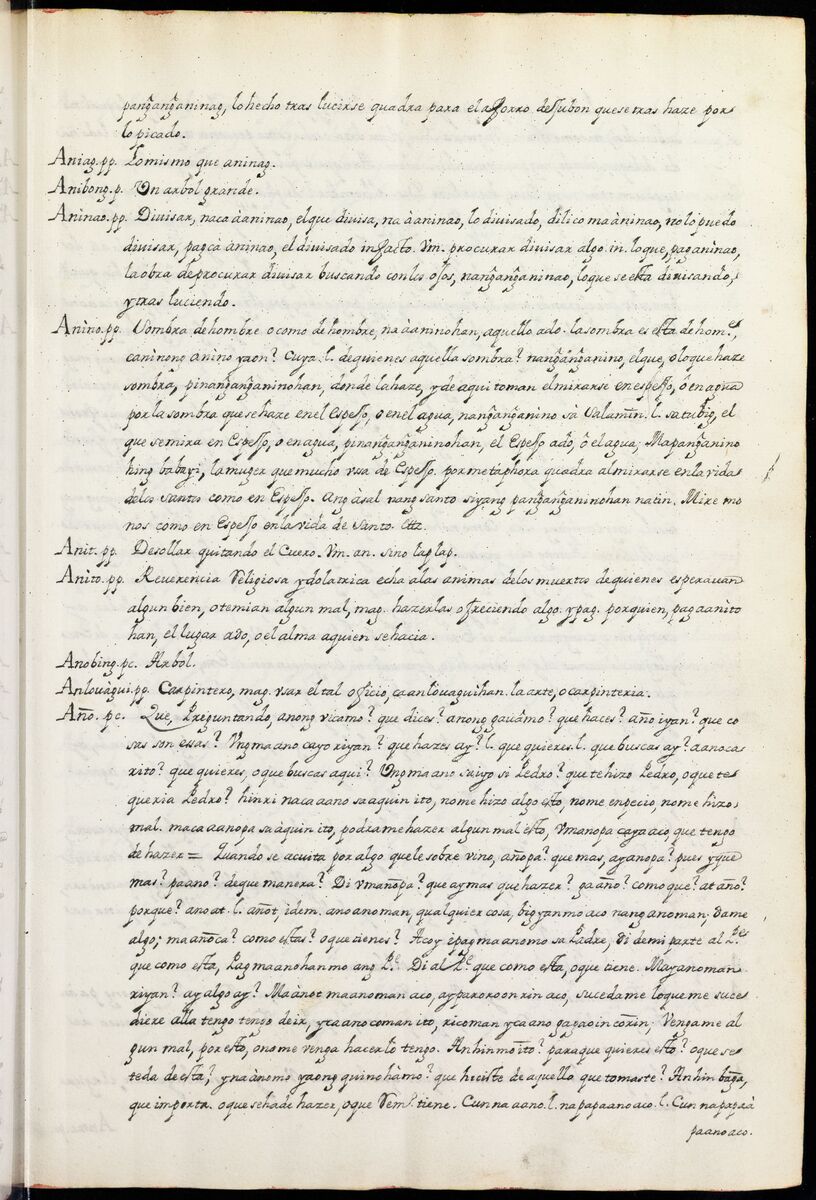 pang̃ang̃aninag, lo hecho tras lucirse quadra para el afforro de Jubon que se tras haze por
lo picado.
Aniag. pp. Lo mismo que aninag.
Anibong. p. Vn arbol grande.
Aninao. pp. Diuisar, naca àaninao, el que diuisa, na àaninao, lo diuisado, dilico ma àninao, no lo puedo
diuisar, pagcà àninao, el diuisado in facto. Vm. procurar diuisar algo. in. lo que, pag aninao,
la obra de procurar diuisar buscando con los ojos, nang̃ang̃aninao, lo que se esta diuisando,
y tras luciendo.
Anino. pp. Sombra de hombre o como de hombre, na àaninohan, aquello ado. la sombra es esta de hom.e,
caninong anino yaon? Cuya. l. de quien es aquella sombra? nang̃ang̃anino, el que, o lo que haze
sombra, pinang̃ang̃aninohan, donde la haze, y de aqui toman el mirarse en espejo, ò en agua
por la sombra que se haze en el Espejo, o en el agua, nang̃ang̃anino sà Salamin. l. sa tubig, el
que se mira en Espejo, o en agua, pinang̃ang̃aninohan, el Espejo ado, ò el agua; Mapang̃anino
king babayi, la muger que mucho vsa de Espejo. por metaphora quadra al mirarse en la vida
delos Santos como en Espejo. Ang àsal nang santo siyang pang̃ang̃aninohan natin. Mire mo
nos como en Espejo en la vida de Santo. &tc.
Anit. pp. Desollar quitando el Cuero. Vm. an. sino laplap.
Anito. pp. Reuerencia Religiosa ydolatrica echa alas animas delos muertos de quienes esperauan
algun bien, o temian algun mal, mag. hazerlas ofreciendo algo. ypag. por quien, pag aanito
han, el lugar ado, o el alma a quien se hacia.
Anobing. pc. Arbol.
Anlouàgui. pp. Carpintero, mag. vsar el tal oficio, ca anlòuaguihan. la arte, o carpinteria.
Año. pc. Que, Preguntando, anong vicamo? que dices? anong gauàmo? que haces? año iyan? que co
sas son essas? Vng ma ano cayo riyan? que hazes ay? l. que quieres. l. que buscas ay? aano ca
rito? que quieres, o que buscas aqui? Vng ma ano sa iyo si Pedro? que te hizo Pedro, o que te
queria Pedro? hinri naca aano sa aquin ito, no me hizo algo esto, no me enpecio, no me hizo
mal. maca aano pa sa àquin ito, podra me hazer algun mal esto, Vmano pa caya aco, que tengo
de hazer = Quando se acuita por algo que le sobre vino, añopa? que mas, ay anopa? pues y que
mas? pa ano? de que manera? Di vmañopa? que ay mas que hazer? ga ano? como que? at año?
porque? ano at. l. añot, idem. ano anoman, qualquier cosa, bigyan mo aco nang anoman; dame
algo; ma año ca? como estas? o que tienes? Acoy ipag ma anomo sa Padre, di de mi parte al P.e
que como esta, Pag ma anohan mo ang P.e Di al P.e que como esta, o que tiene. May anoman
riyan? ay algo ay? Ma ànot ma anoman aco, ay paroroon rin aco, sucedame lo que me suce
diere alla tengo tengo de ir, yca ano coman ito, ricoman yca ano gagao in corin; Vengame al
gun mal, por esto, o no me venga hacerlo tengo. An hin mo ito? para que quieres esto? o que se
te da de esta; y na ànomo ya ong quinohàmo? que heciste de aquello que tomaste? An hin bag̃a,
que importa. o que se ha de hazer, o que Sem.l tiene. Cun na aano. l. na papaano aco. l. Cun na papaà
paano aco.